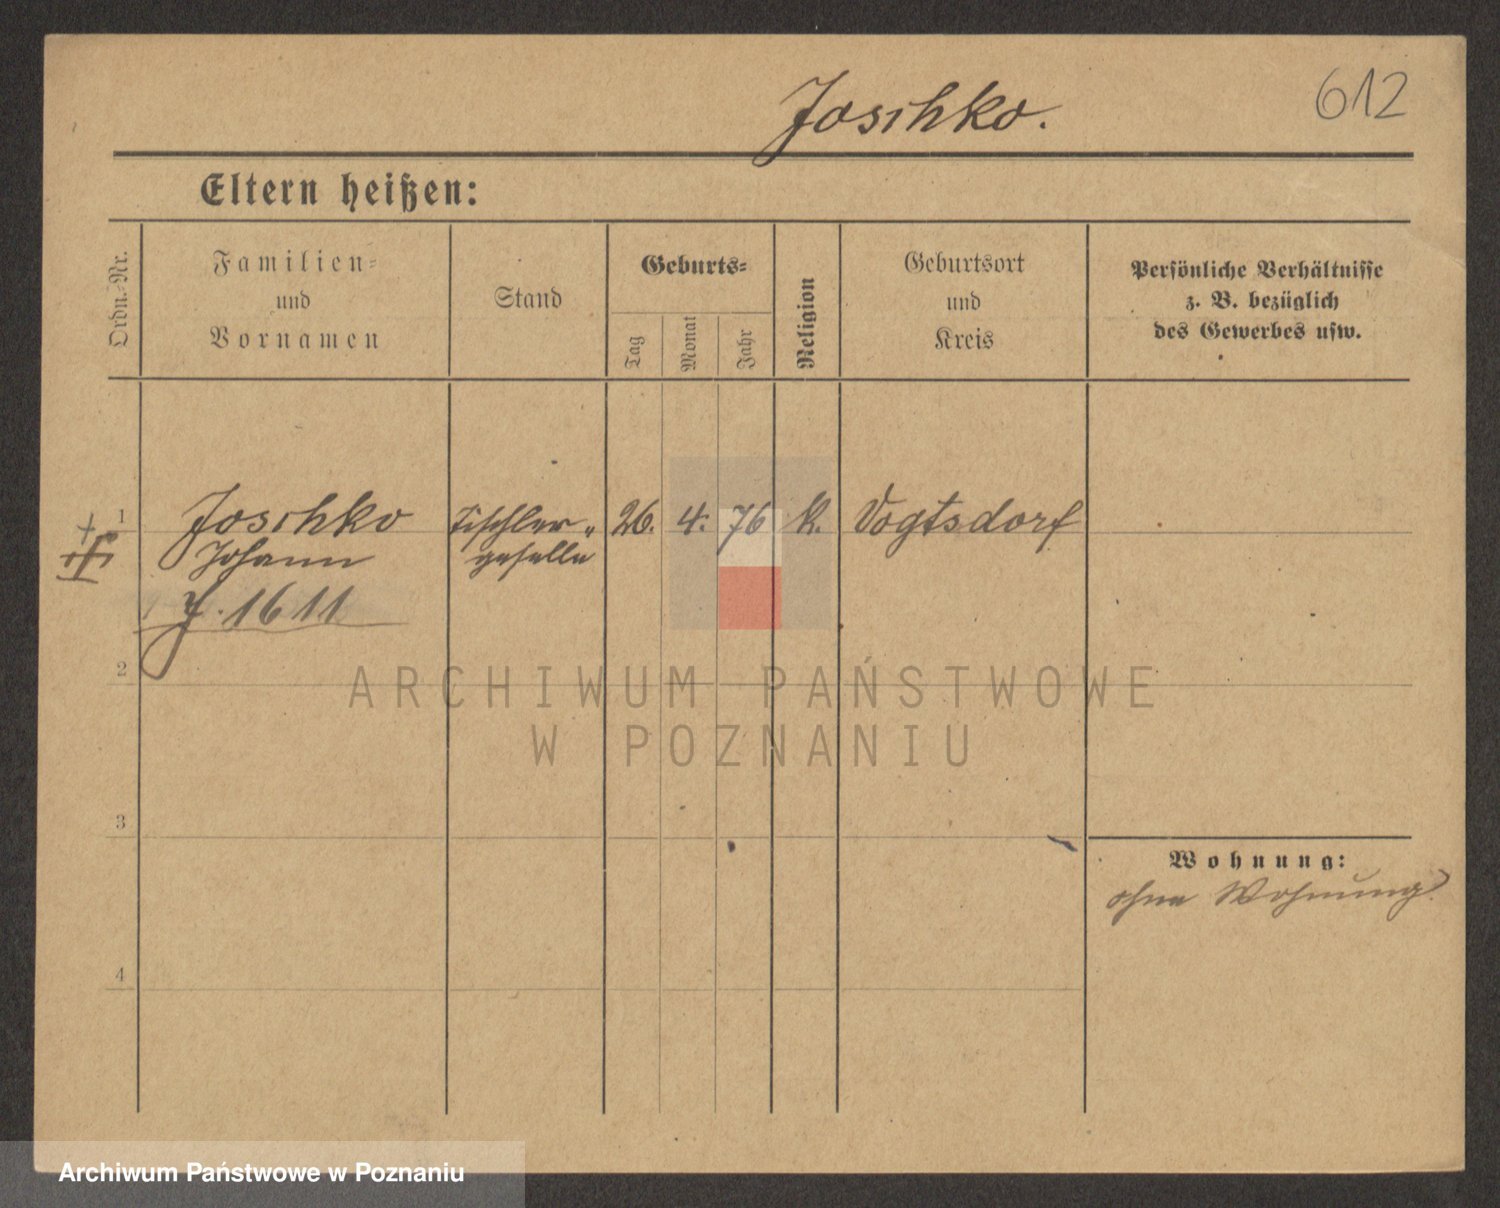 612
Joschko.
Eltern heißen:
Ordn.-Nr.
Familien-
und
Vornamen
Stand
Geburts-
Tag
Monat
Jahr
Religion
Geburtsort
und
Kreis
Persönliche Verhältnisse
z. B. bezüglich
des Gewerbes usw.
1
Joschko
Johann
J. 1611
Tischler-
geselle
26.
4.
76
k.
Vogtsdorf
2
3
4
Wohnung:
ohne Wohnung
ARCHIWUM PAŃSTWOWE
W POZNANIU
Archiwum Państwowe w Poznaniu